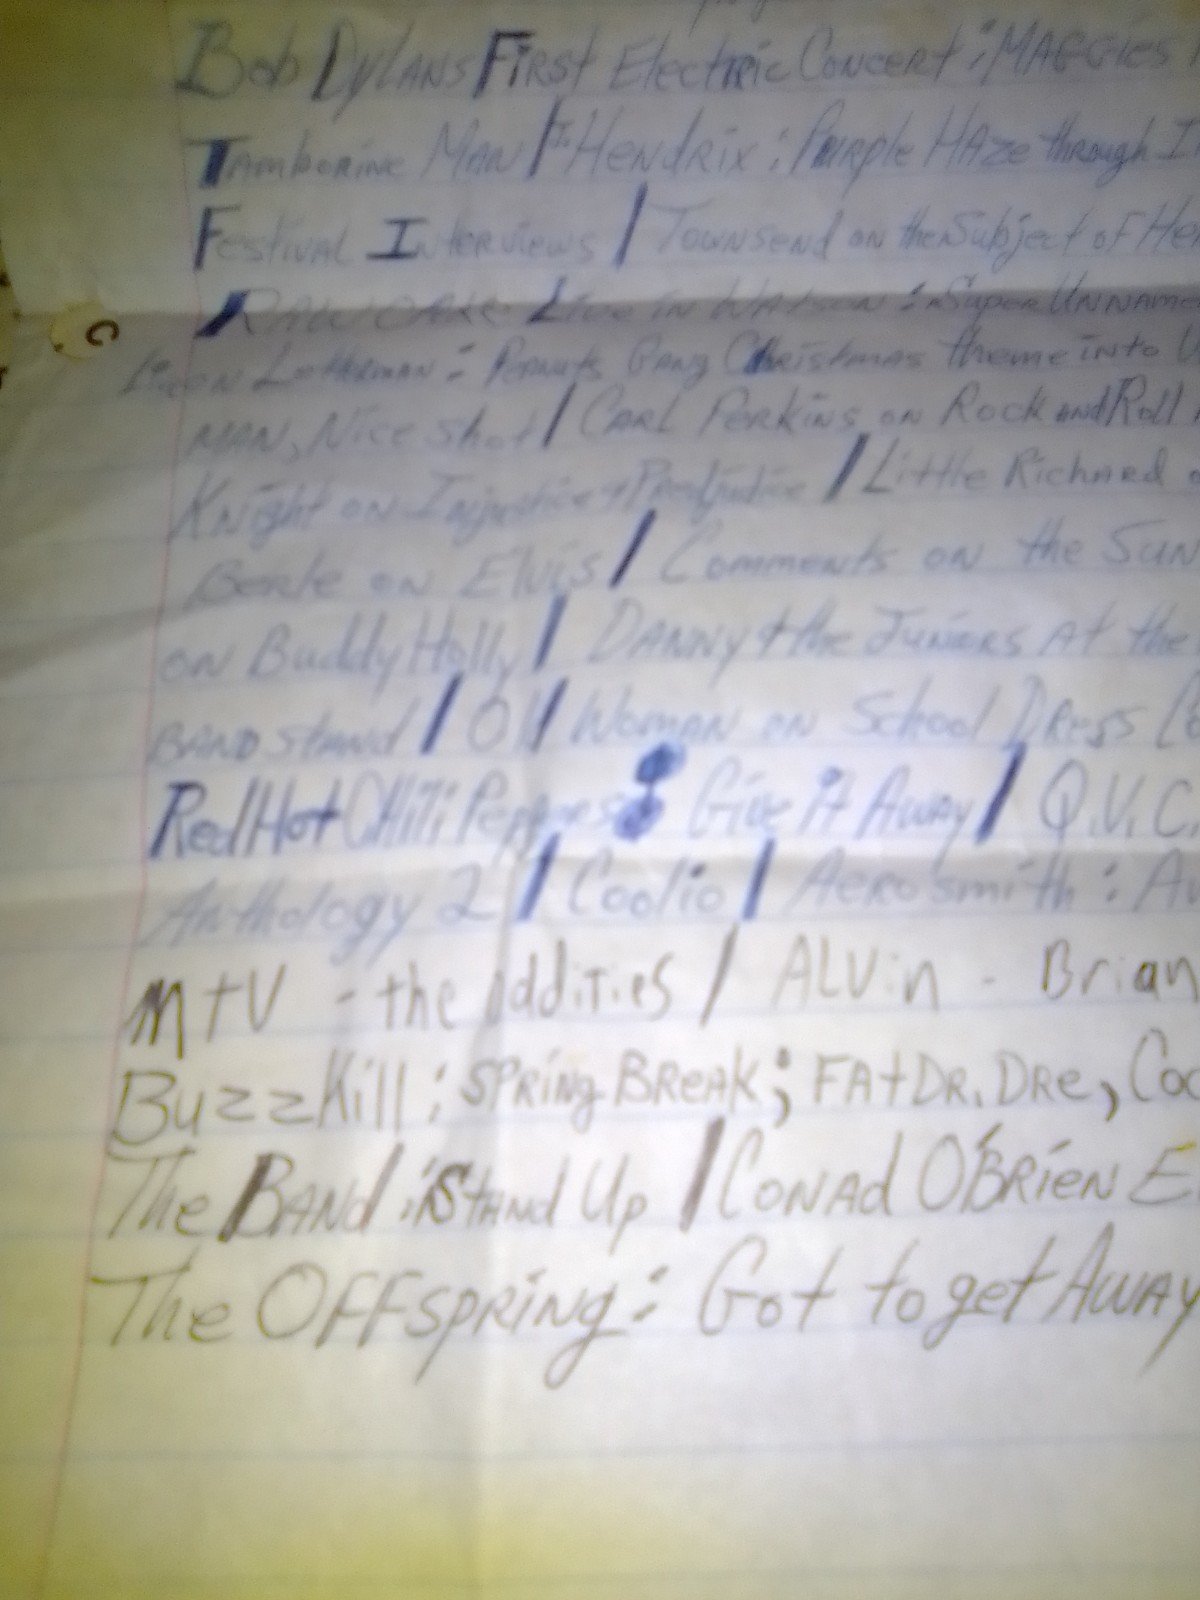 Bob Dylans First Electric Concert : Maggies
Tamborine Man / Hendrix : Purple Haze through
Festival Interviews / Townsend on the Subject of
Live in : Super
Letterman : Peanuts Gang Christmas theme into
man, Nice shot / Carl Perkins on Rock and Roll
Knight on Injustice + / Little Richard
Berle on Elvis / Comments on the Sun
on Buddy Holly / Danny + the Juniors At the
Band stand / Woman on School Dress
Red Hot Chili : Give it Away / Q.V.C.
Anthology 2 / Coolio / Aerosmith :
MtV - the oddities / ALVin - Brian
BuzzKill : Spring Break ; FAt DR. DRe,
The Band : Stand Up / Conad O'Brien
The OFFspring : Got to get Away